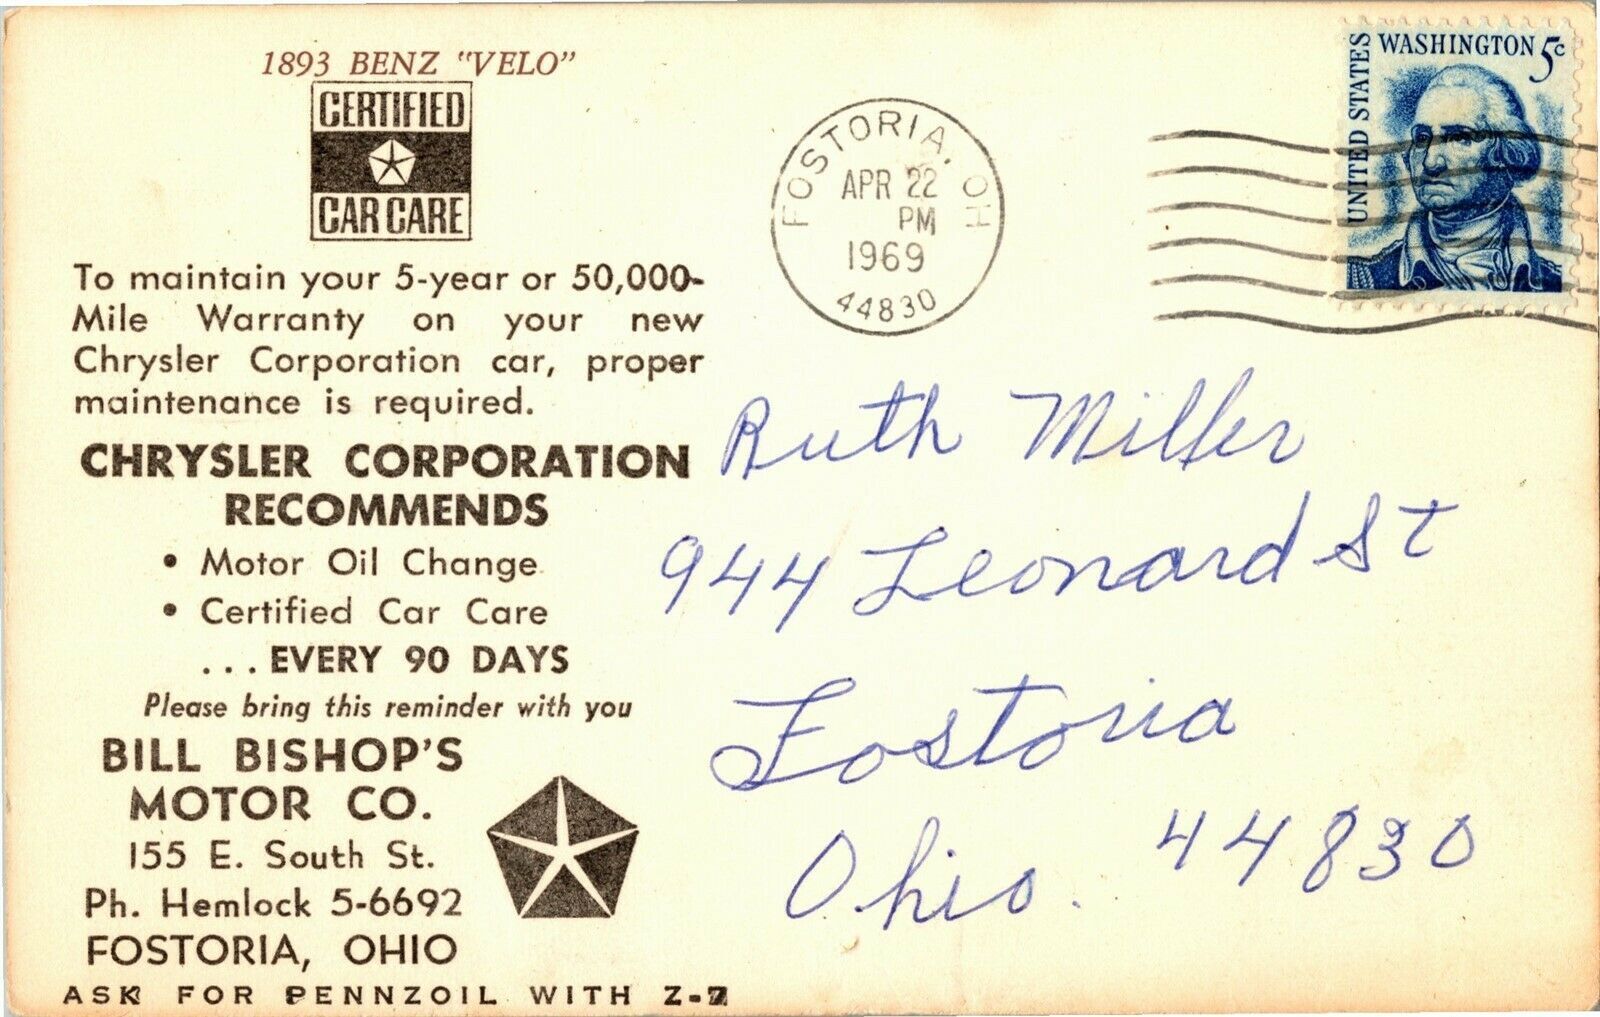 1893 BENZ "VELO"
CERTIFIED
CAR CARE
To maintain your 5-year or 50,000-
Mile Warranty on your new
Chrysler Corporation car, proper
maintenance is required.
CHRYSLER CORPORATION
RECOMMENDS
• Motor Oil Change
• Certified Car Care
... EVERY 90 DAYS
Please bring this reminder with you
BILL BISHOP'S
MOTOR CO.
155 E. South St.
Ph. Hemlock 5-6692
FOSTORIA, OHIO
ASK FOR PENNZOIL WITH Z-7
FOSTORIA, OH
APR 22
PM
1969
44830
UNITED STATES
WASHINGTON 5c
Ruth Miller
944 Leonard St
Fostoria
Ohio. 44830